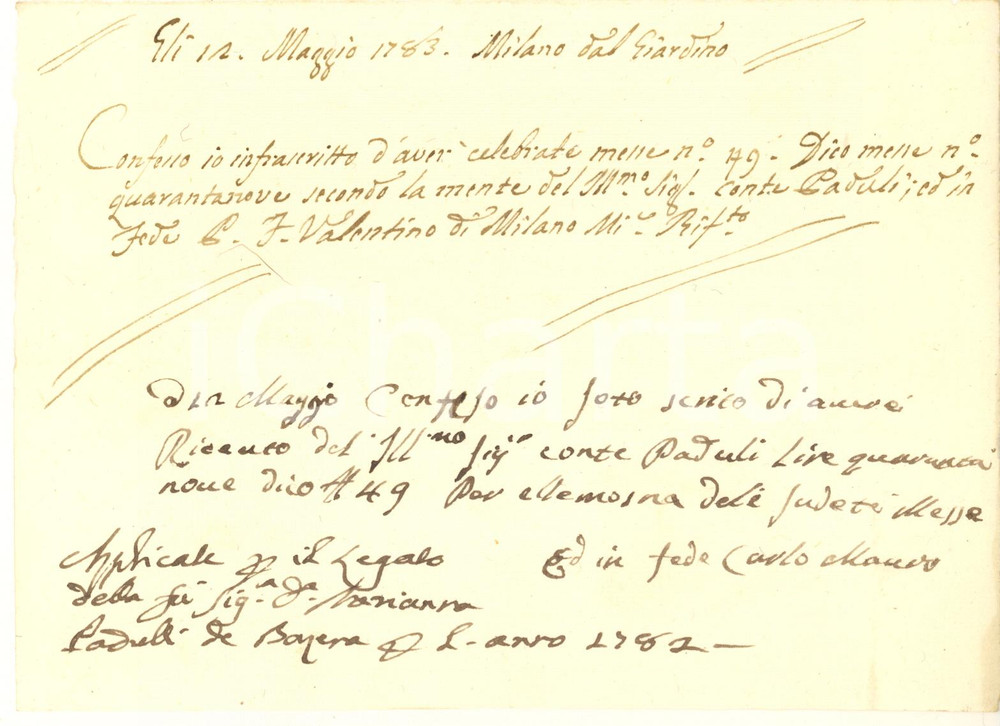 Eli 12. Maggio 1783. Milano dal Giardino
Confesso io infrascritto d'aver celebrate messe n.º 49. Dico messe n.º
quarantanove secondo la mente del Ill.mo Sig.r conte Paduli; ed in
fede P. F. Valentino di Milano Mi.e Rif.to
iCharta
D 12 Maggio Confesso io soto scrito di avere
Riceuto del Ill.mo Sig.r conte Paduli Lire quaranta
noue dico ₶ 49 Per elemosna dele sudete Messe
Ed in fede Carlo Mauro
Applicate p il Legato
della fu Sig.a D.a Marianna
Padulli de Bozera p L-anno 1782 —